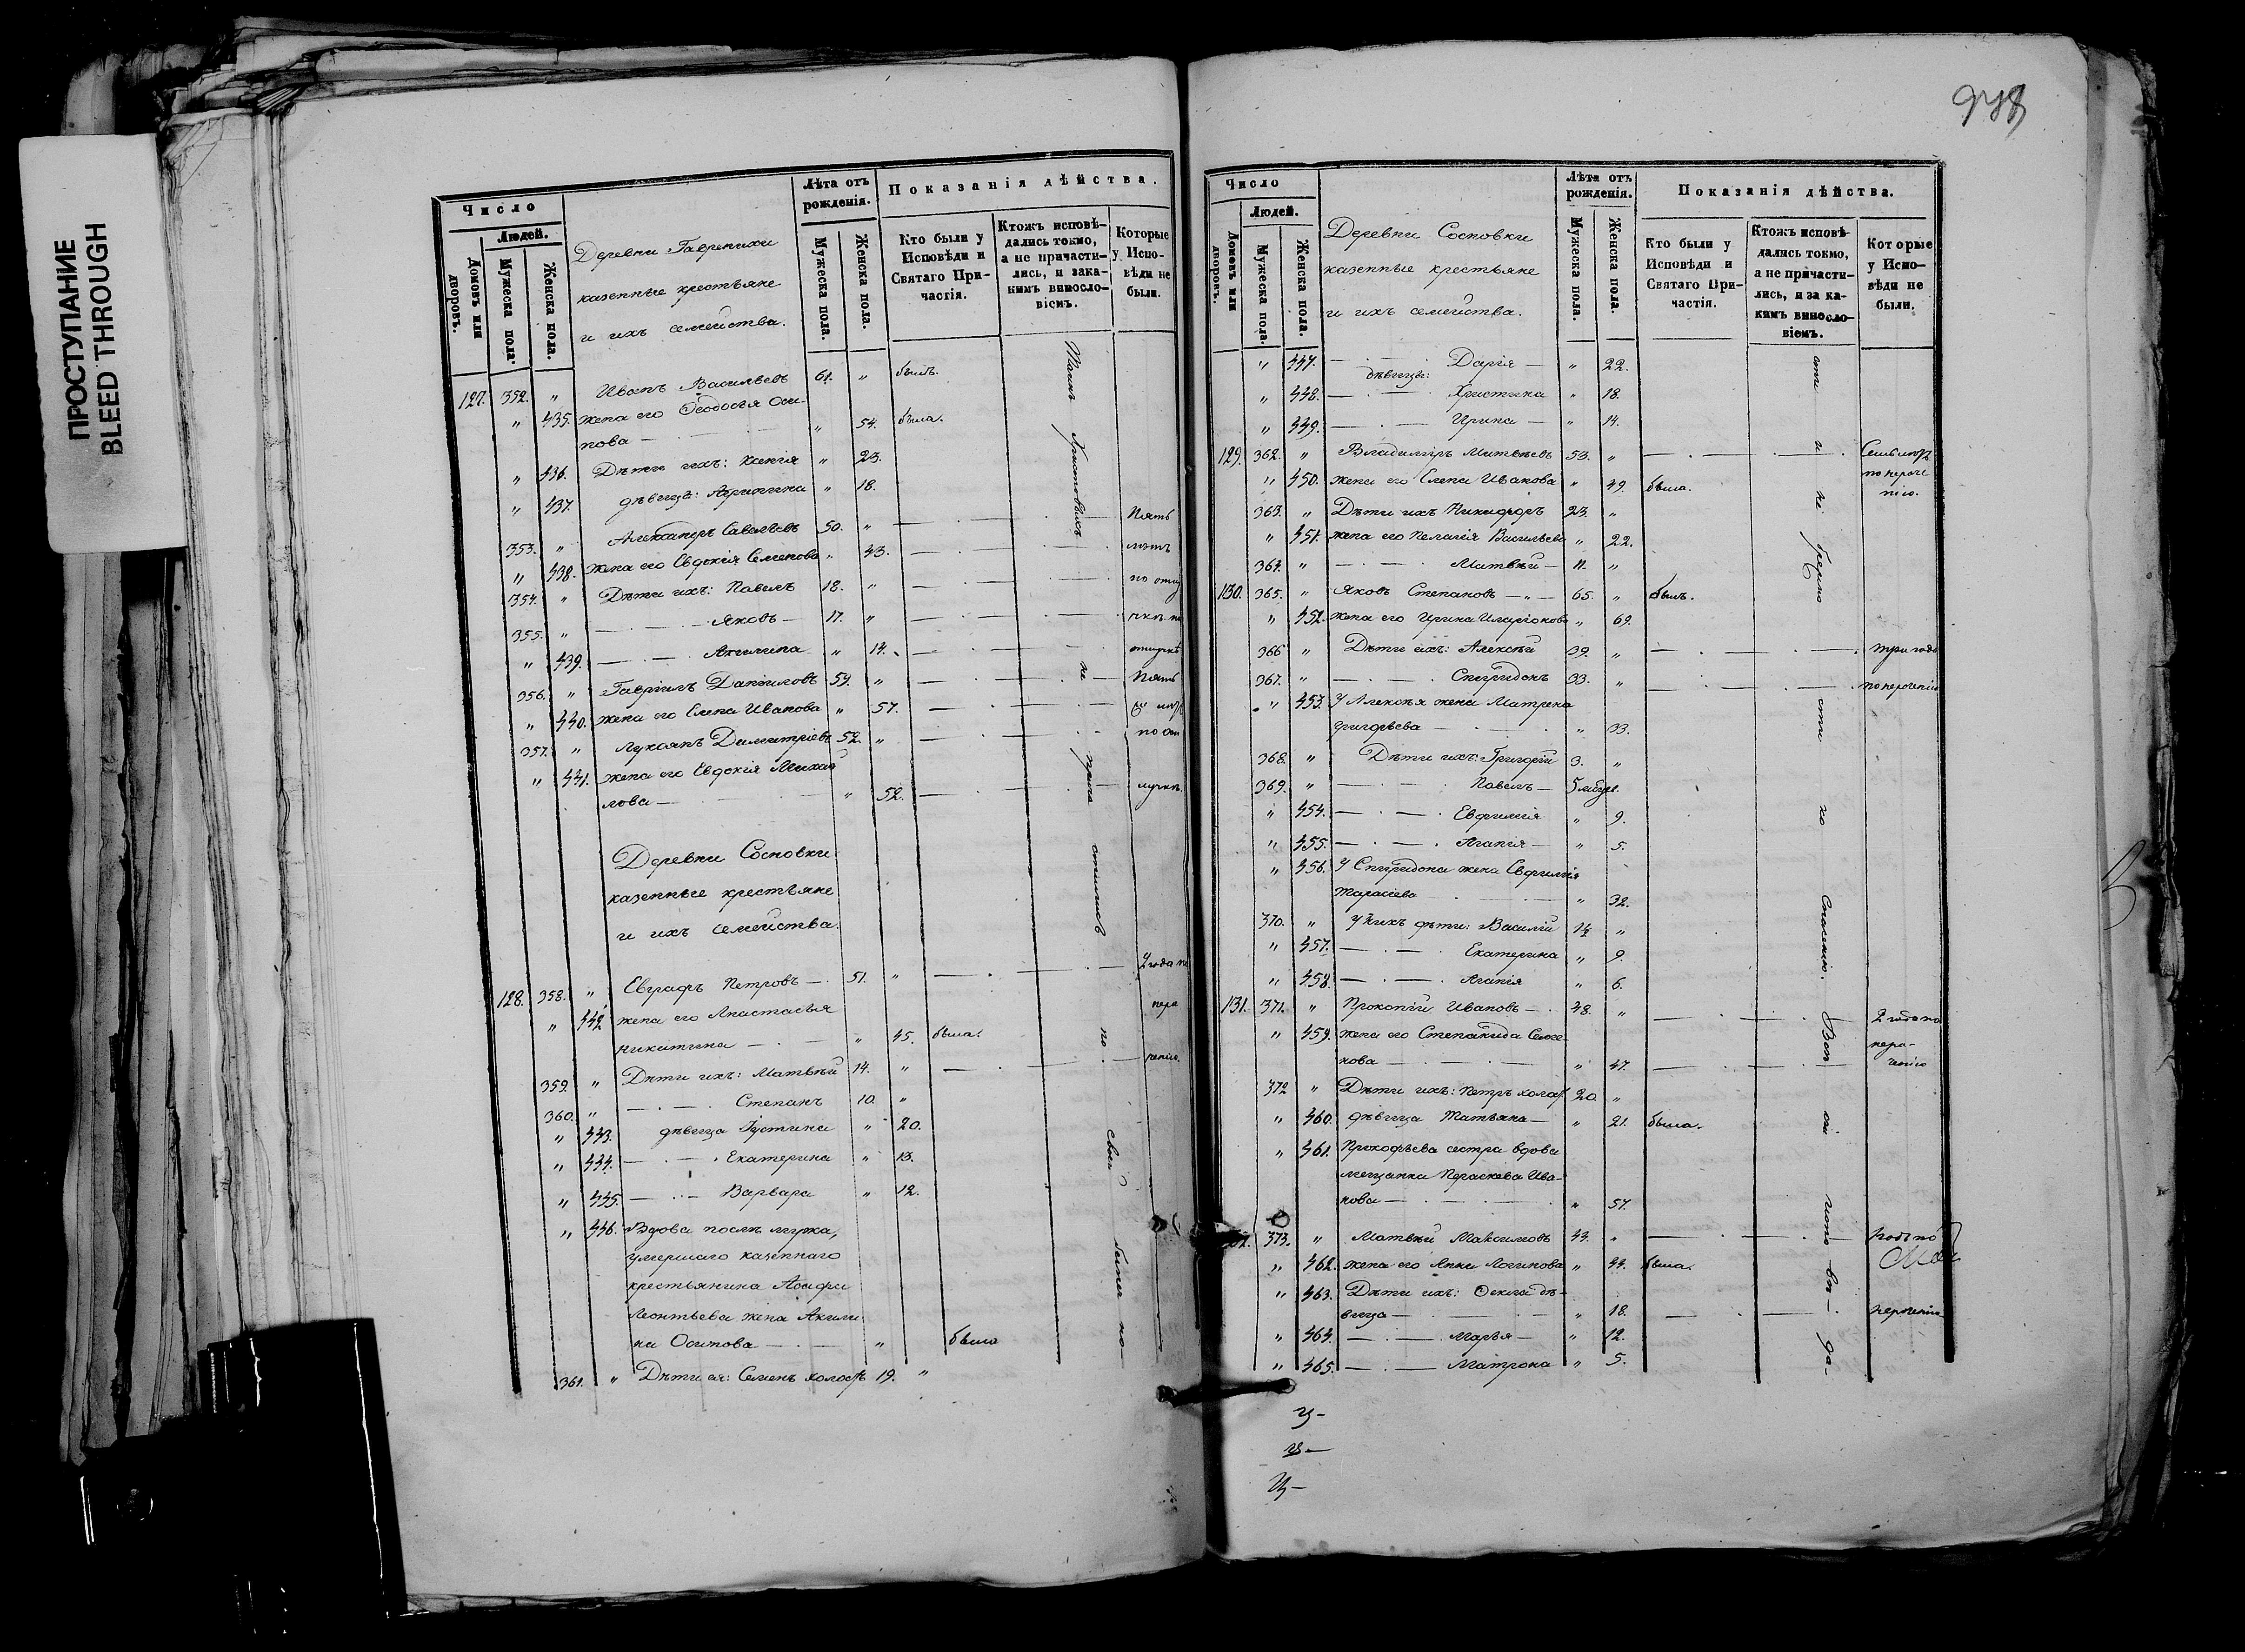 ПРОСТУПАНИЕ
BLEED THROUGH
Число
Людей.
Домовъ или дворовъ.
Мужеска пола.
Женска пола.
Деревни Гавренихи
казенные крестьяне
и ихъ семейства.
Лѣта отъ рожденія.
Мужеска пола.
Женска пола.
Показанія дѣйства.
Кто были у Исповѣди и Святаго Причастія.
Ктожъ исповѣдались токмо, а не причастились, и закакимъ винословіемъ.
Которые у Исповѣди не были.
127. 352. " Иванъ Васильевъ 61. " былъ.
" 435. жена его Ѳеодосья Оси-
пова — " 54. была.
" 436. Дѣти ихъ: Ксенія " 23.
" 437. дѣвица: Агрипина " 18.
353. " Александръ Савельевъ 50. " — Пять
" 438. жена его Евдокія Семенова " 43. — лѣтъ
354. " Дѣти ихъ: Павелъ 18. " — по отлу
355. " — Яковъ — 17. " —
" 439. — Акилина " 14. —
356. " Гавріилъ Даніиловъ 59. " — Пять
" 440. жена его Елена Иванова " 57. —
357. " Лукоянъ Димитріевъ 52. " — по от
" 441. жена его Евдокія Михай
лова — " 52. — лучкѣ.
Деревни Сосновки
казенные крестьяне
и ихъ семейства.
128. 358. " Евграфъ Петровъ — 51. " — 2 года по
" 442 жена его Анастасья нера
Никитина — " 45. была.
359. " Дѣти ихъ: Матвѣй 14. " — ченію.
360. " — Степанъ 10. "
" 443. дѣвица Іустина " 20.
" 444. — Екатерина " 13.
" 445. — Варвара " 12.
" 446. Вдова послѣ мужа,
умершаго казеннаго
крестьянина Іосифа
Леонтьева жена Акили
на Осипова — " была
361. " Дѣти ея: Семенъ холостъ 19. "
Таинъ Христовыхъ не прича стились по своей
Число
Людей.
Домовъ или дворовъ.
Мужеска пола.
Женска пола.
Деревни Сосновки
казенные крестьяне
и ихъ семейства.
Лѣта отъ рожденія.
Мужеска пола.
Женска пола.
Показанія дѣйства.
Кто были у Исповѣди и Святаго Причастія.
Ктожъ исповѣдались токмо, а не причастились, и за какимъ винословіемъ.
Которые у Исповѣди не были.
" 447. — Дарія — " 22.
дѣвицы:
" 448. — Христина " 18.
" 449. — Ирина — " 14.
129. 362. " Владиміръ Матвѣевъ 53. " — Семь лѣтъ
" 450. жена его Елена Иванова " 49. была. по нераче
нію.
363. " Дѣти ихъ Никифоръ 23. "
" 451. жена его Пелагія Васильева " 22.
364. " — Матвѣй — 11. "
130. 365. " Яковъ Степановъ — 65. " былъ.
" 452. жена его Ирина Иларіонова " 69.
366 " Дѣти ихъ: Алексѣй 39. " — три года
367. " — Спиридонъ 33. " — по нераченію
" 453. У Алексѣя жена Матрена
Григорьева — " 33.
368. " Дѣти ихъ: Григорій 3. "
369. " — Павелъ —
" 454. — Евфимія " 9.
" 455. — Агапія — " 5.
" 456. У Спиридона жена Евфимія
Тарасіева — " 32.
370. " У нихъ дѣти: Василій 14 "
" 457. — Екатерина " 9.
" 458. — Агапія " 6.
131. 371. " Прокопій Ивановъ — 48. " — 2 года по
" 459. жена его Степанида Семе- нера-
нова — " 47. — ченію
372 " Дѣти ихъ: Петръ холос. 20. "
" 460. дѣвица Татьяна — " 21. была.
" 461. Прокофьева сестра вдова
мещанка Параскева Ива-
нова — " 57.
373. " Матвѣй Максимовъ 43. " — Годъ по
" 462. жена его Анна Логинова " 44. была.
" 463. Дѣти ихъ: Ѳекла дѣ-
вица — " 18. — нераченію
" 464. — Марья — " 12.
" 465. — Матрона " 5.